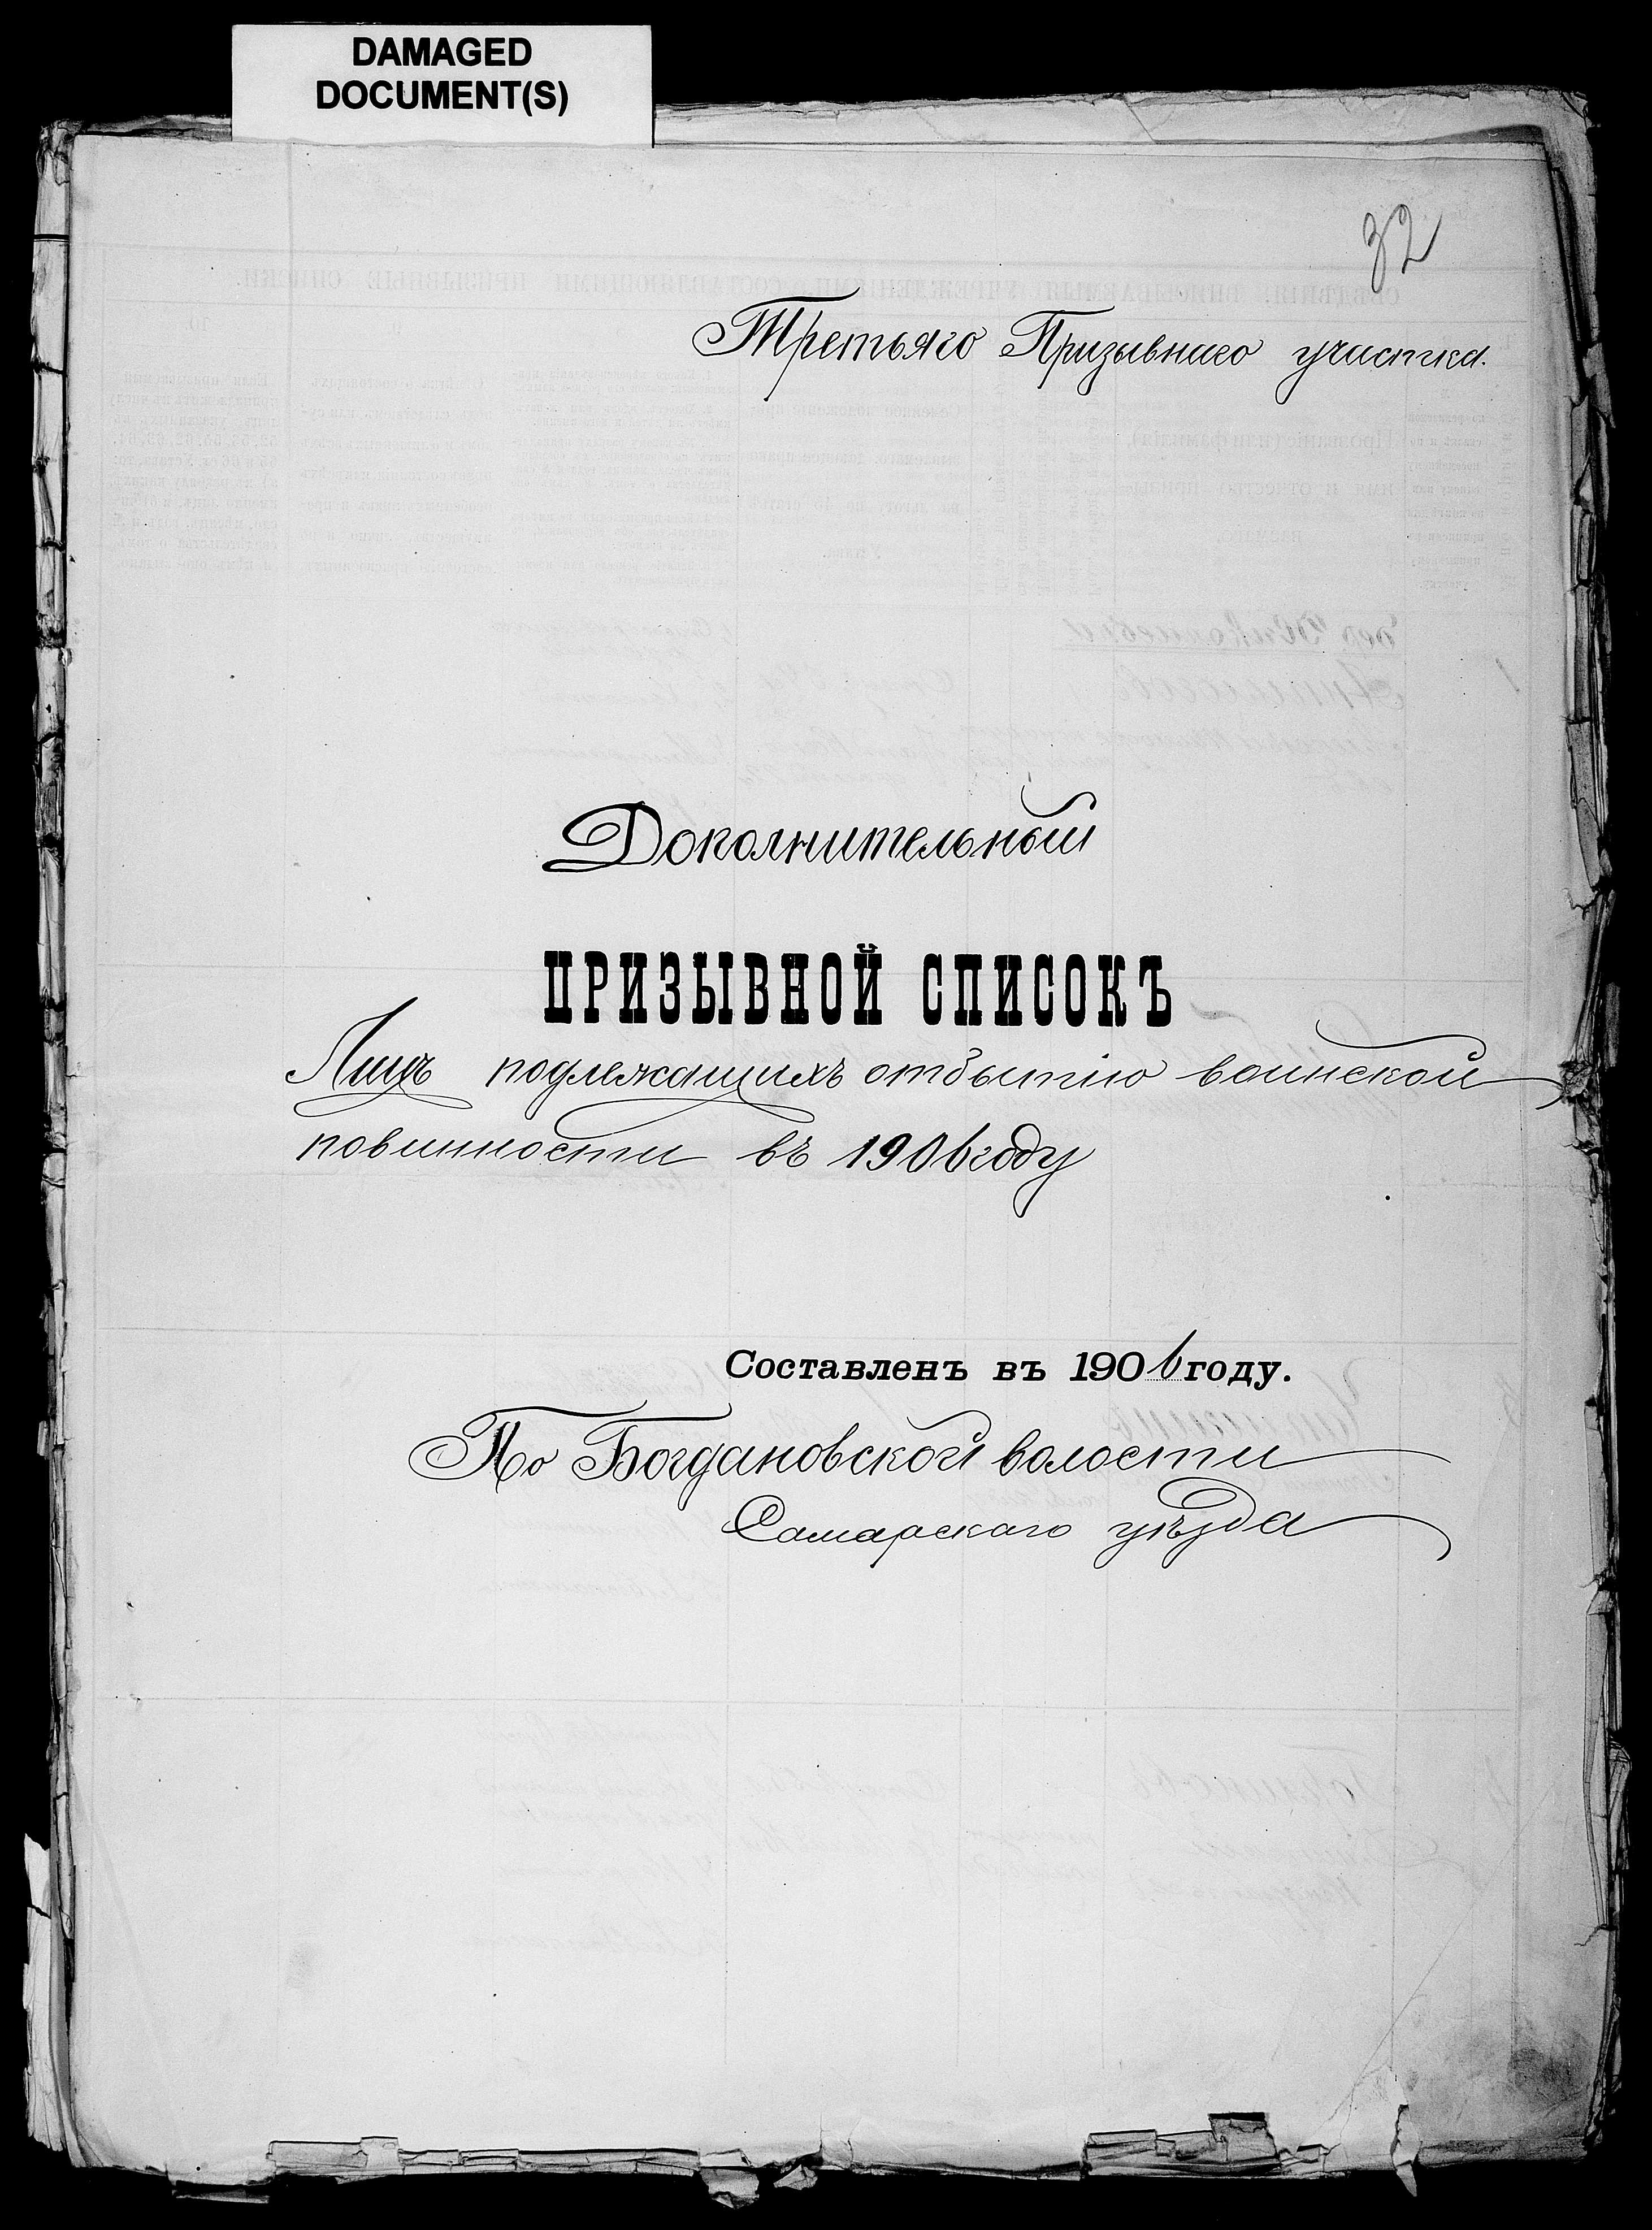 DAMAGED
DOCUMENT(S)
32
Третьяго Призывнаго участка.
Дополнительный
ПРИЗЫВНОЙ СПИСОКЪ
Лицъ подлежащихъ отбытію воинской
повинности въ 1906 году
Составленъ въ 1906 году.
По Богдановской волости
Самарскаго уѣзда